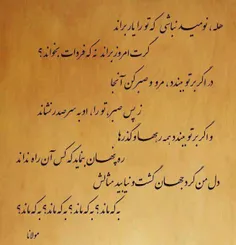 هله، نومید نباشی که تو را یار براند
گرت امروز براند نه که فردات بخواند؟
در اگر بر تو ببندد، مرو و صبر کن آنجا
ز پس صبر، تو را، او به سر صدر نشاند
و اگر بر تو ببندد همه ره‌ها و گذرها
ره پنهان بنماید که کس آن راه نداند
دل من گرد جهان گشت و نیابید مثالش
به که ماند؟ به که ماند؟ به که ماند؟ به که ماند؟
مولانا